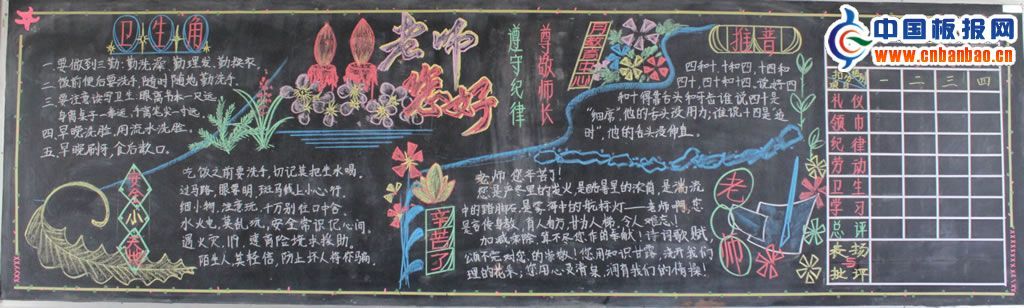 卫生角
一.要做到三勤:勤洗澡 勤理发,勤换衣.
二.饭前便后要洗手,随时随地勤洗手.
三.要注意读写卫生:眼离书本一尺远,
身离桌子一拳远,手离笔尖一寸远.
四.早晚洗脸,用流水洗脸.
五.早晚刷牙,食后漱口.
安全小天地
吃饭之前要洗手,切记莫把生水喝.
过马路,眼要明,斑马线上小心行.
细小物,注意玩,千万别往口中含.
水火电,莫乱玩,安全常识记心间.
遇火灾,119,遭商险境水救助.
陌生人,莫轻信,防上坏人将你骗,
老师
您好
遵守纪律
尊敬师长
推普
四和十,十和四,十四和
四十,四十和十四,说好四
和十得靠舌头和牙齿.谁说四十是
"细席",他的舌头没用力;谁说十四是
"时",他的舌头没伸直.
辛苦了
老师,您辛苦了!
您是严冬里的炭火,是
中的踏脚石,是雾海中的航标灯——老师啊,您
言传身教,育人有方,甘为人梯,令人难忘!
加减乘除,算不尽您作的奉献!诗词歌赋,
颂不完对您的崇敬!您用知识甘露,浇开我们
理的花朵;您用心灵清泉,润育我们的情操!
老师
中国板报网
www.cnbanbao.cn
一 二 三 四
礼仪
领巾
纪律
劳动
卫生
学习
总评
表扬
与
批评